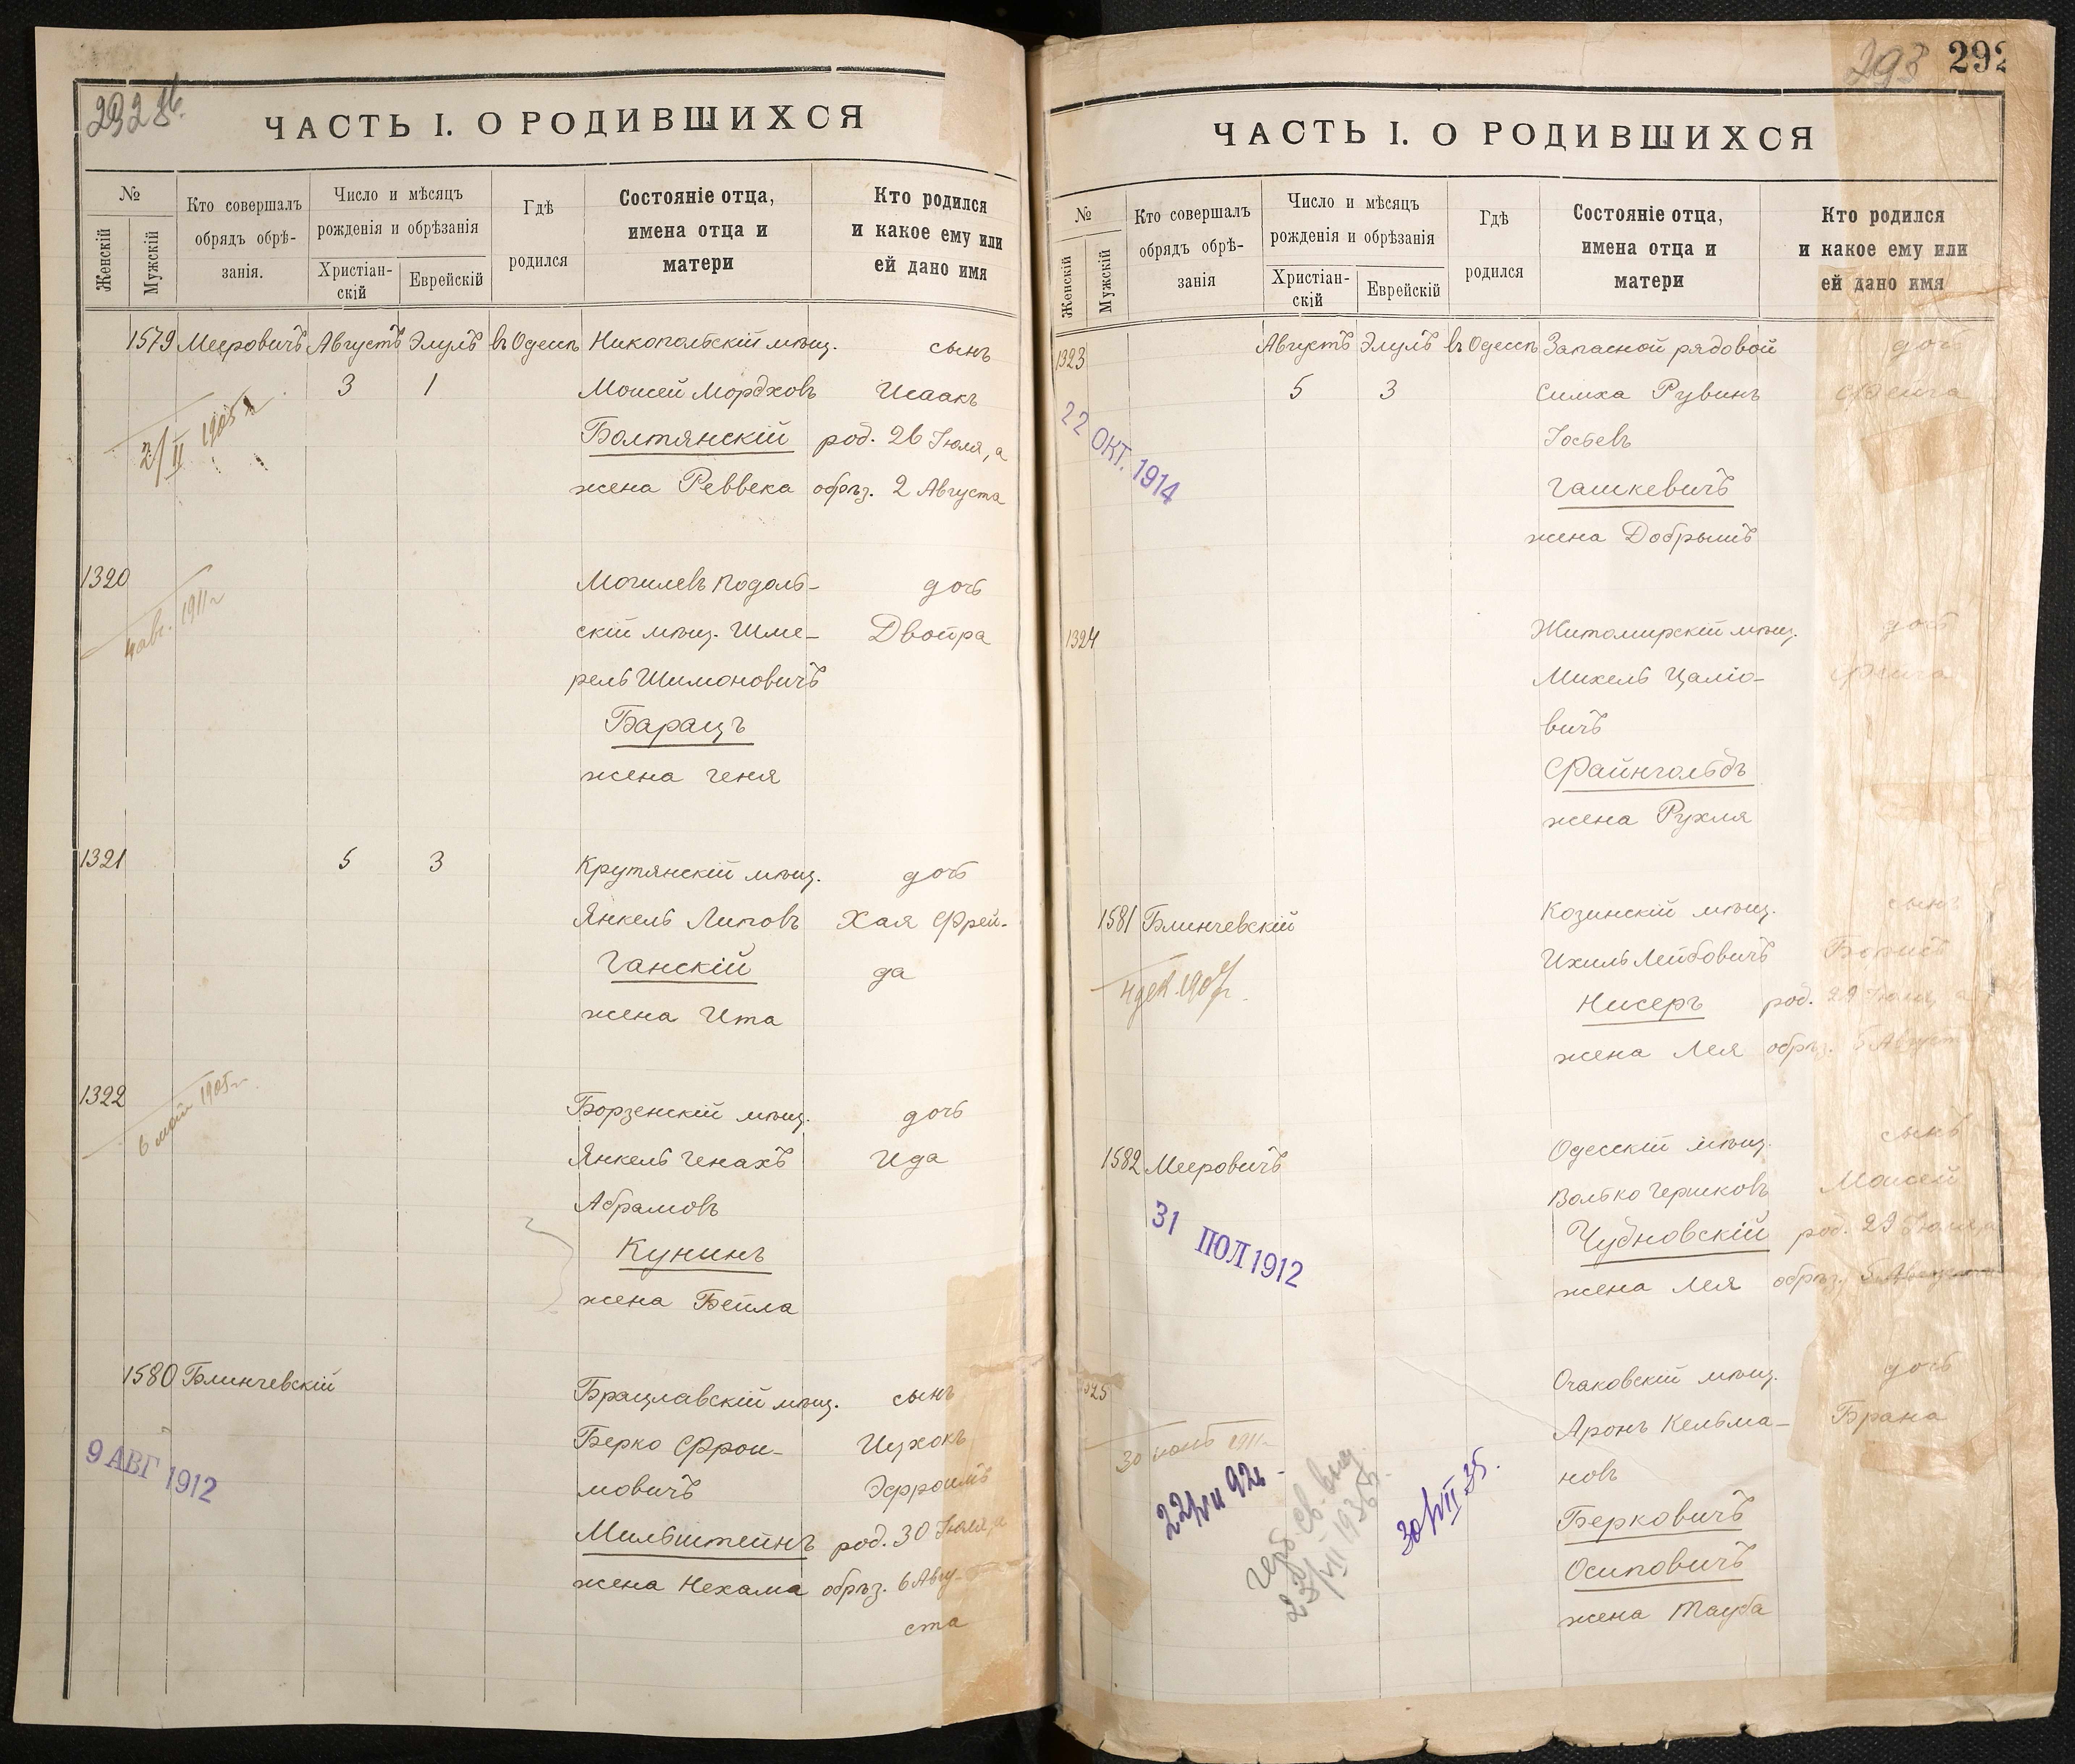 ЧАСТЬ I. О РОДИВШИХСЯ
№
Женскій
Мужскій
Кто совершалъ
обрядъ обрѣ-
занія.
Число и мѣсяцъ
рожденія и обрѣзанія
Христіан-
скій
Еврейскій
Гдѣ
родился
Состояніе отца,
имена отца и
матери
Кто родился
и какое ему или
ей дано имя
1579 Мееровичъ Августъ Элулъ въ Одессѣ Никопольскій мѣщ. сынъ
3 1 Моисей Мордховъ Исаакъ
Болтянскій род. 26 Іюля, а
жена Реввека обрѣз. 2 Августа
2/II 1905 г
1320 Могилевъ Подоль- дочь
скій мѣщ. Шме- Двойра
рель Шимоновичъ
Баращъ
жена Геня
4 авг. 1911 г
1321 5 3 Крутянскій мѣщ. дочь
Янкель Липовъ Хая Фрей-
Ганскій да
жена Ита
1322 Борзенскій мѣщ. дочь
Янкель Генахъ Ида
Абрамовъ
Кунинъ
жена Бейла
6 май 1905 г.
1580 Блинчевскій Брацлавскій мѣщ. сынъ
Берко Фрои- Ицхокъ
мовичъ Эфроимъ
Мильштейнъ род. 30 Іюля, а
жена Нехама обрѣз. 6 Авгу-
ста
9 АВГ 1912
293 292
ЧАСТЬ I. О РОДИВШИХСЯ
№
Женскій
Мужскій
Кто совершалъ
обрядъ обрѣ-
занія
Число и мѣсяцъ
рожденія и обрѣзанія
Христіан-
скій
Еврейскій
Гдѣ
родился
Состояніе отца,
имена отца и
матери
Кто родился
и какое ему или
ей дано имя
1323 Августъ Элулъ въ Одессѣ Запасной рядовой дочь
5 3 Симха Рувинъ Фейга
Іосьевъ
Гашкевичъ
жена Добрышъ
22 ОКТ. 1914
1324 Житомирскій мѣщ. дочь
Михель Цаліо- Фейга
вичъ
Файнгольдъ
жена Рухля
1581 Блинчевскій Козинскій мѣщ. сынъ
Ихиль Лейбовичъ Борисъ
Нисеръ род. 29 Іюля, а
жена Лея обрѣз. 5 Август
4 дек. 1907 г.
1582 Мееровичъ Одесскій мѣщ. сынъ
Волько Гершковъ Моисей
Чудновскій род. 29 Іюля, а
жена Лея обрѣз. 5 Августа
31 ІЮЛ 1912
1325 Очаковскій мѣщ. дочь
Аронъ Кельма- Брана
новъ
Берковичъ
Осиповичъ
жена Тауба
30 1911 г
30/VII 35.